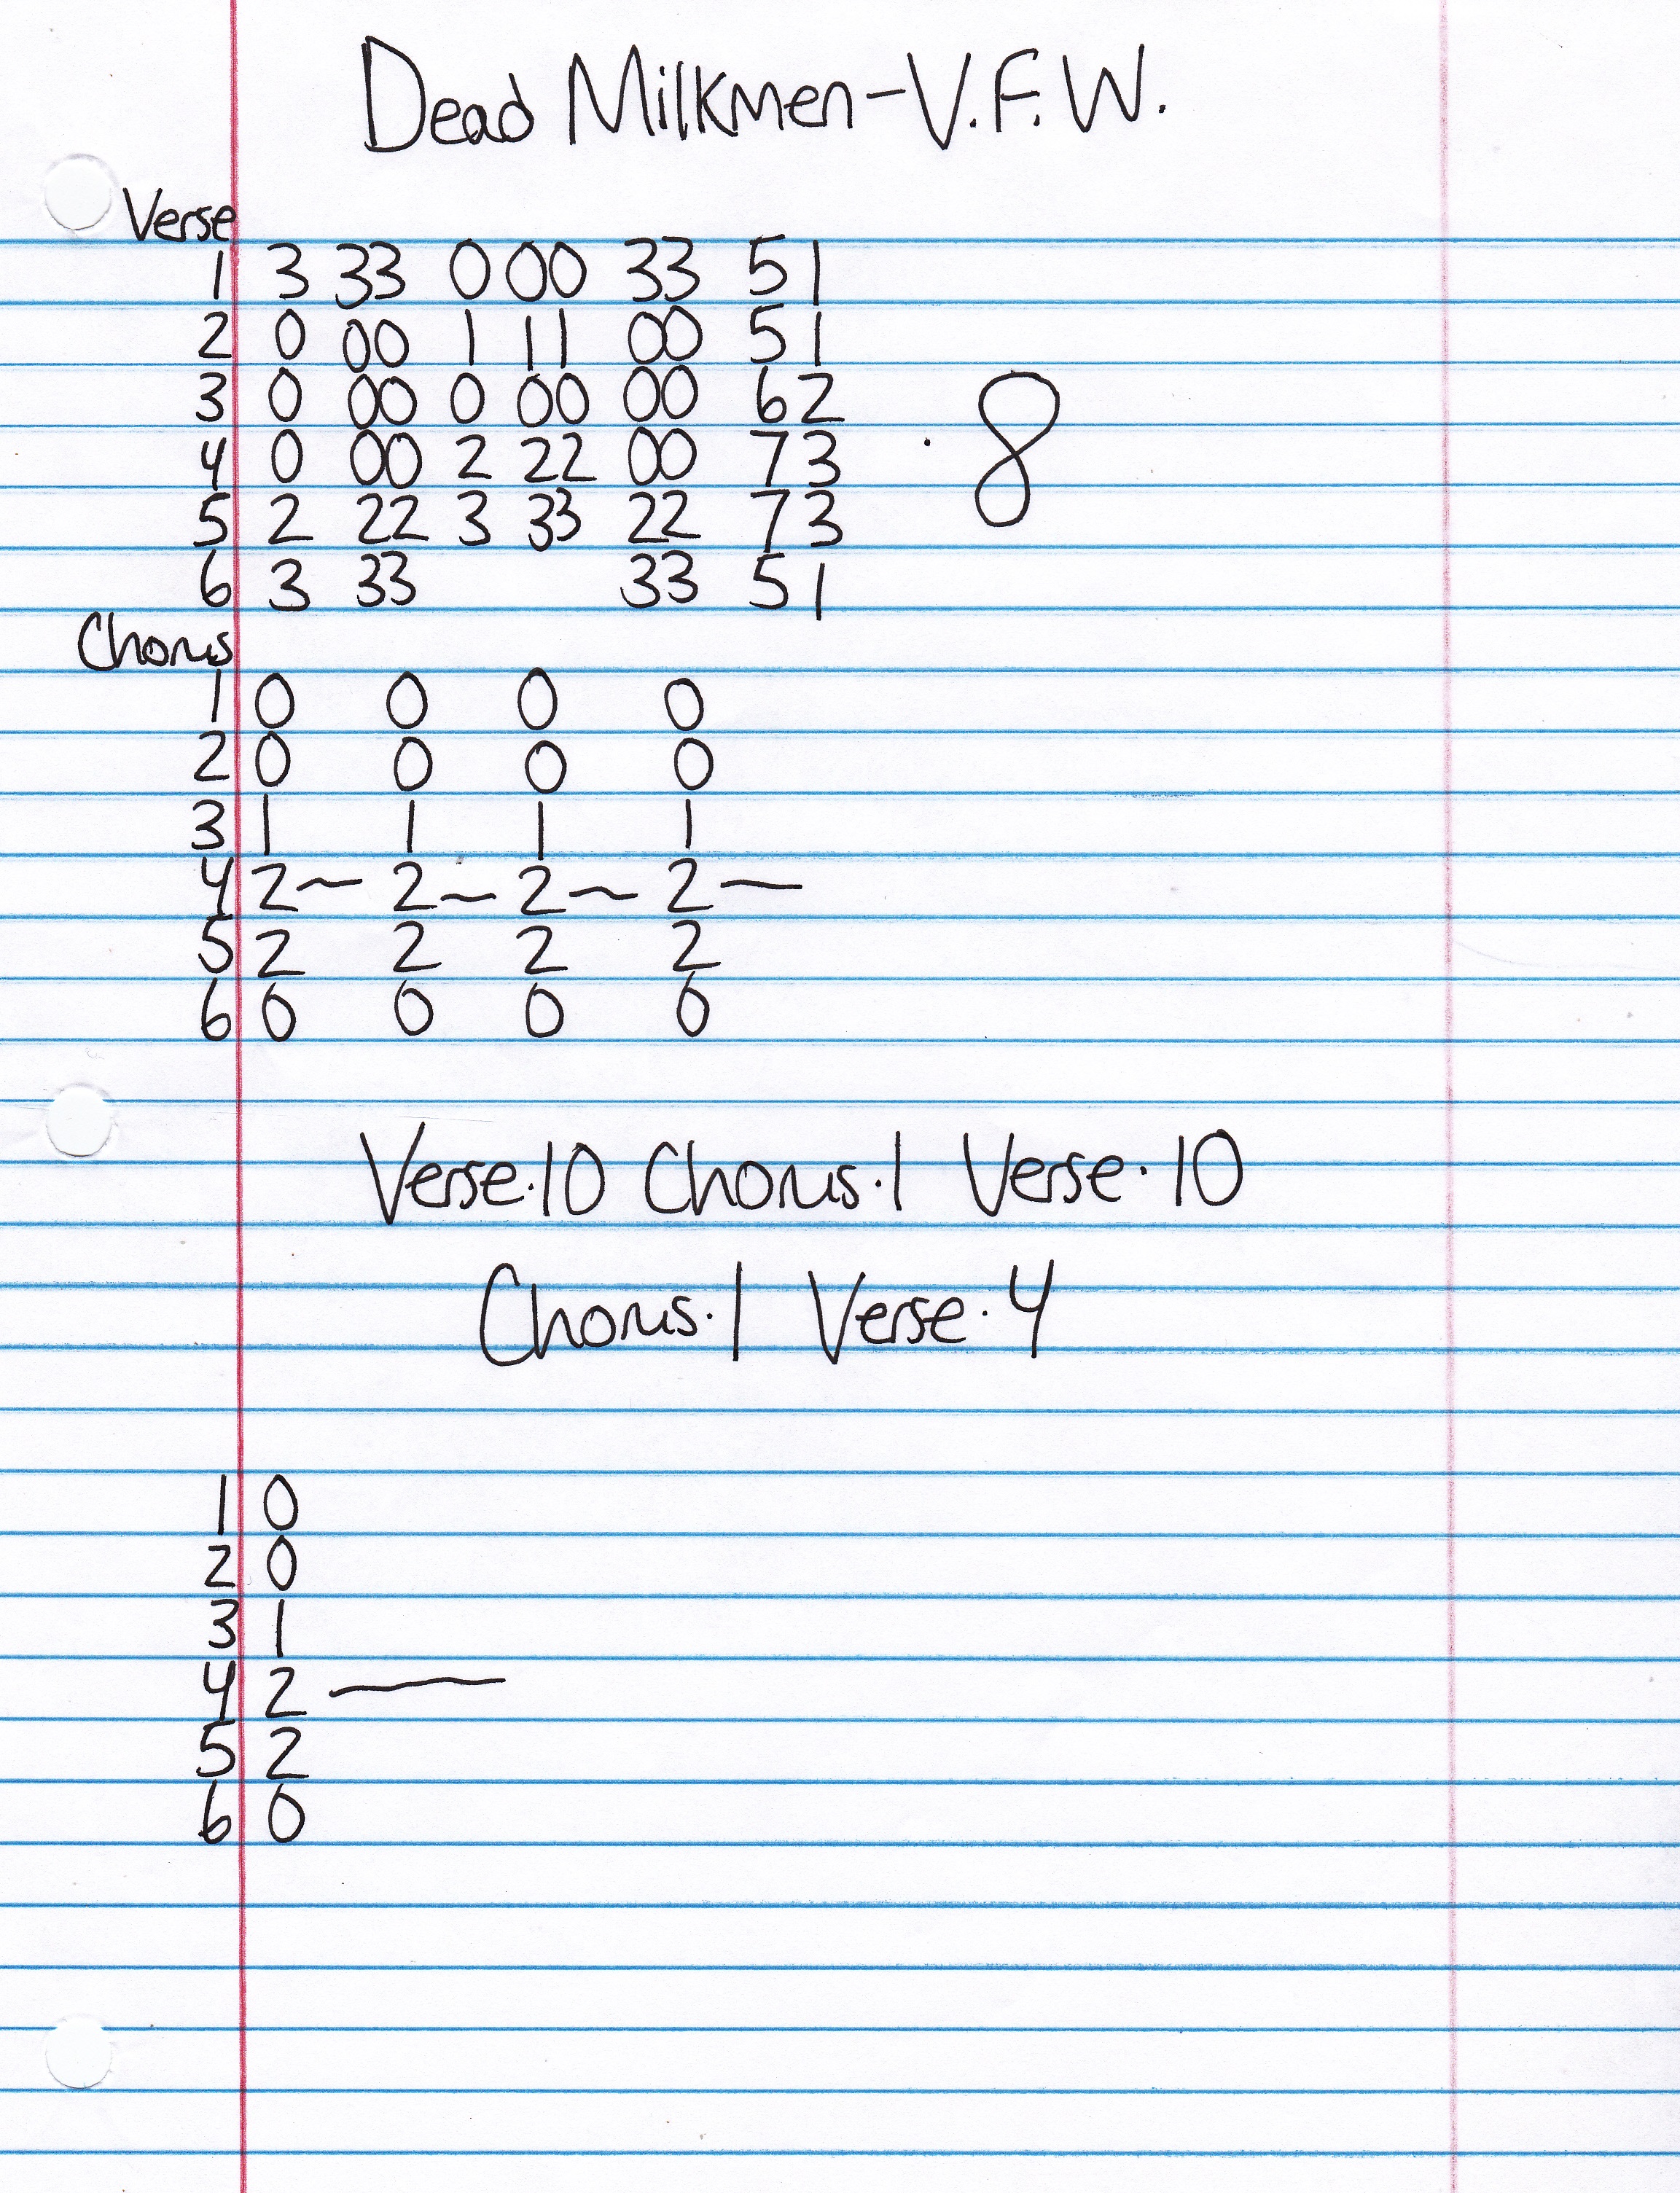 Dead Milkmen-V.F.W.
Verse
1 3 33 0 00 33 51
2 0 00 1 11 00 51
3 0 00 0 00 00 62
4 0 00 2 22 00 73 · 8
5 2 22 3 33 22 73
6 3 33 33 51
Chorus
1 0 0 0 0
2 0 0 0 0
3 1 1 1 1
4 2~ 2~ 2~ 2~
5 2 2 2 2
6 0 0 0 0
Verse·10 Chorus·1 Verse·10
Chorus·1 Verse·4
1 0
2 0
3 1
4 2 —
5 2
6 0